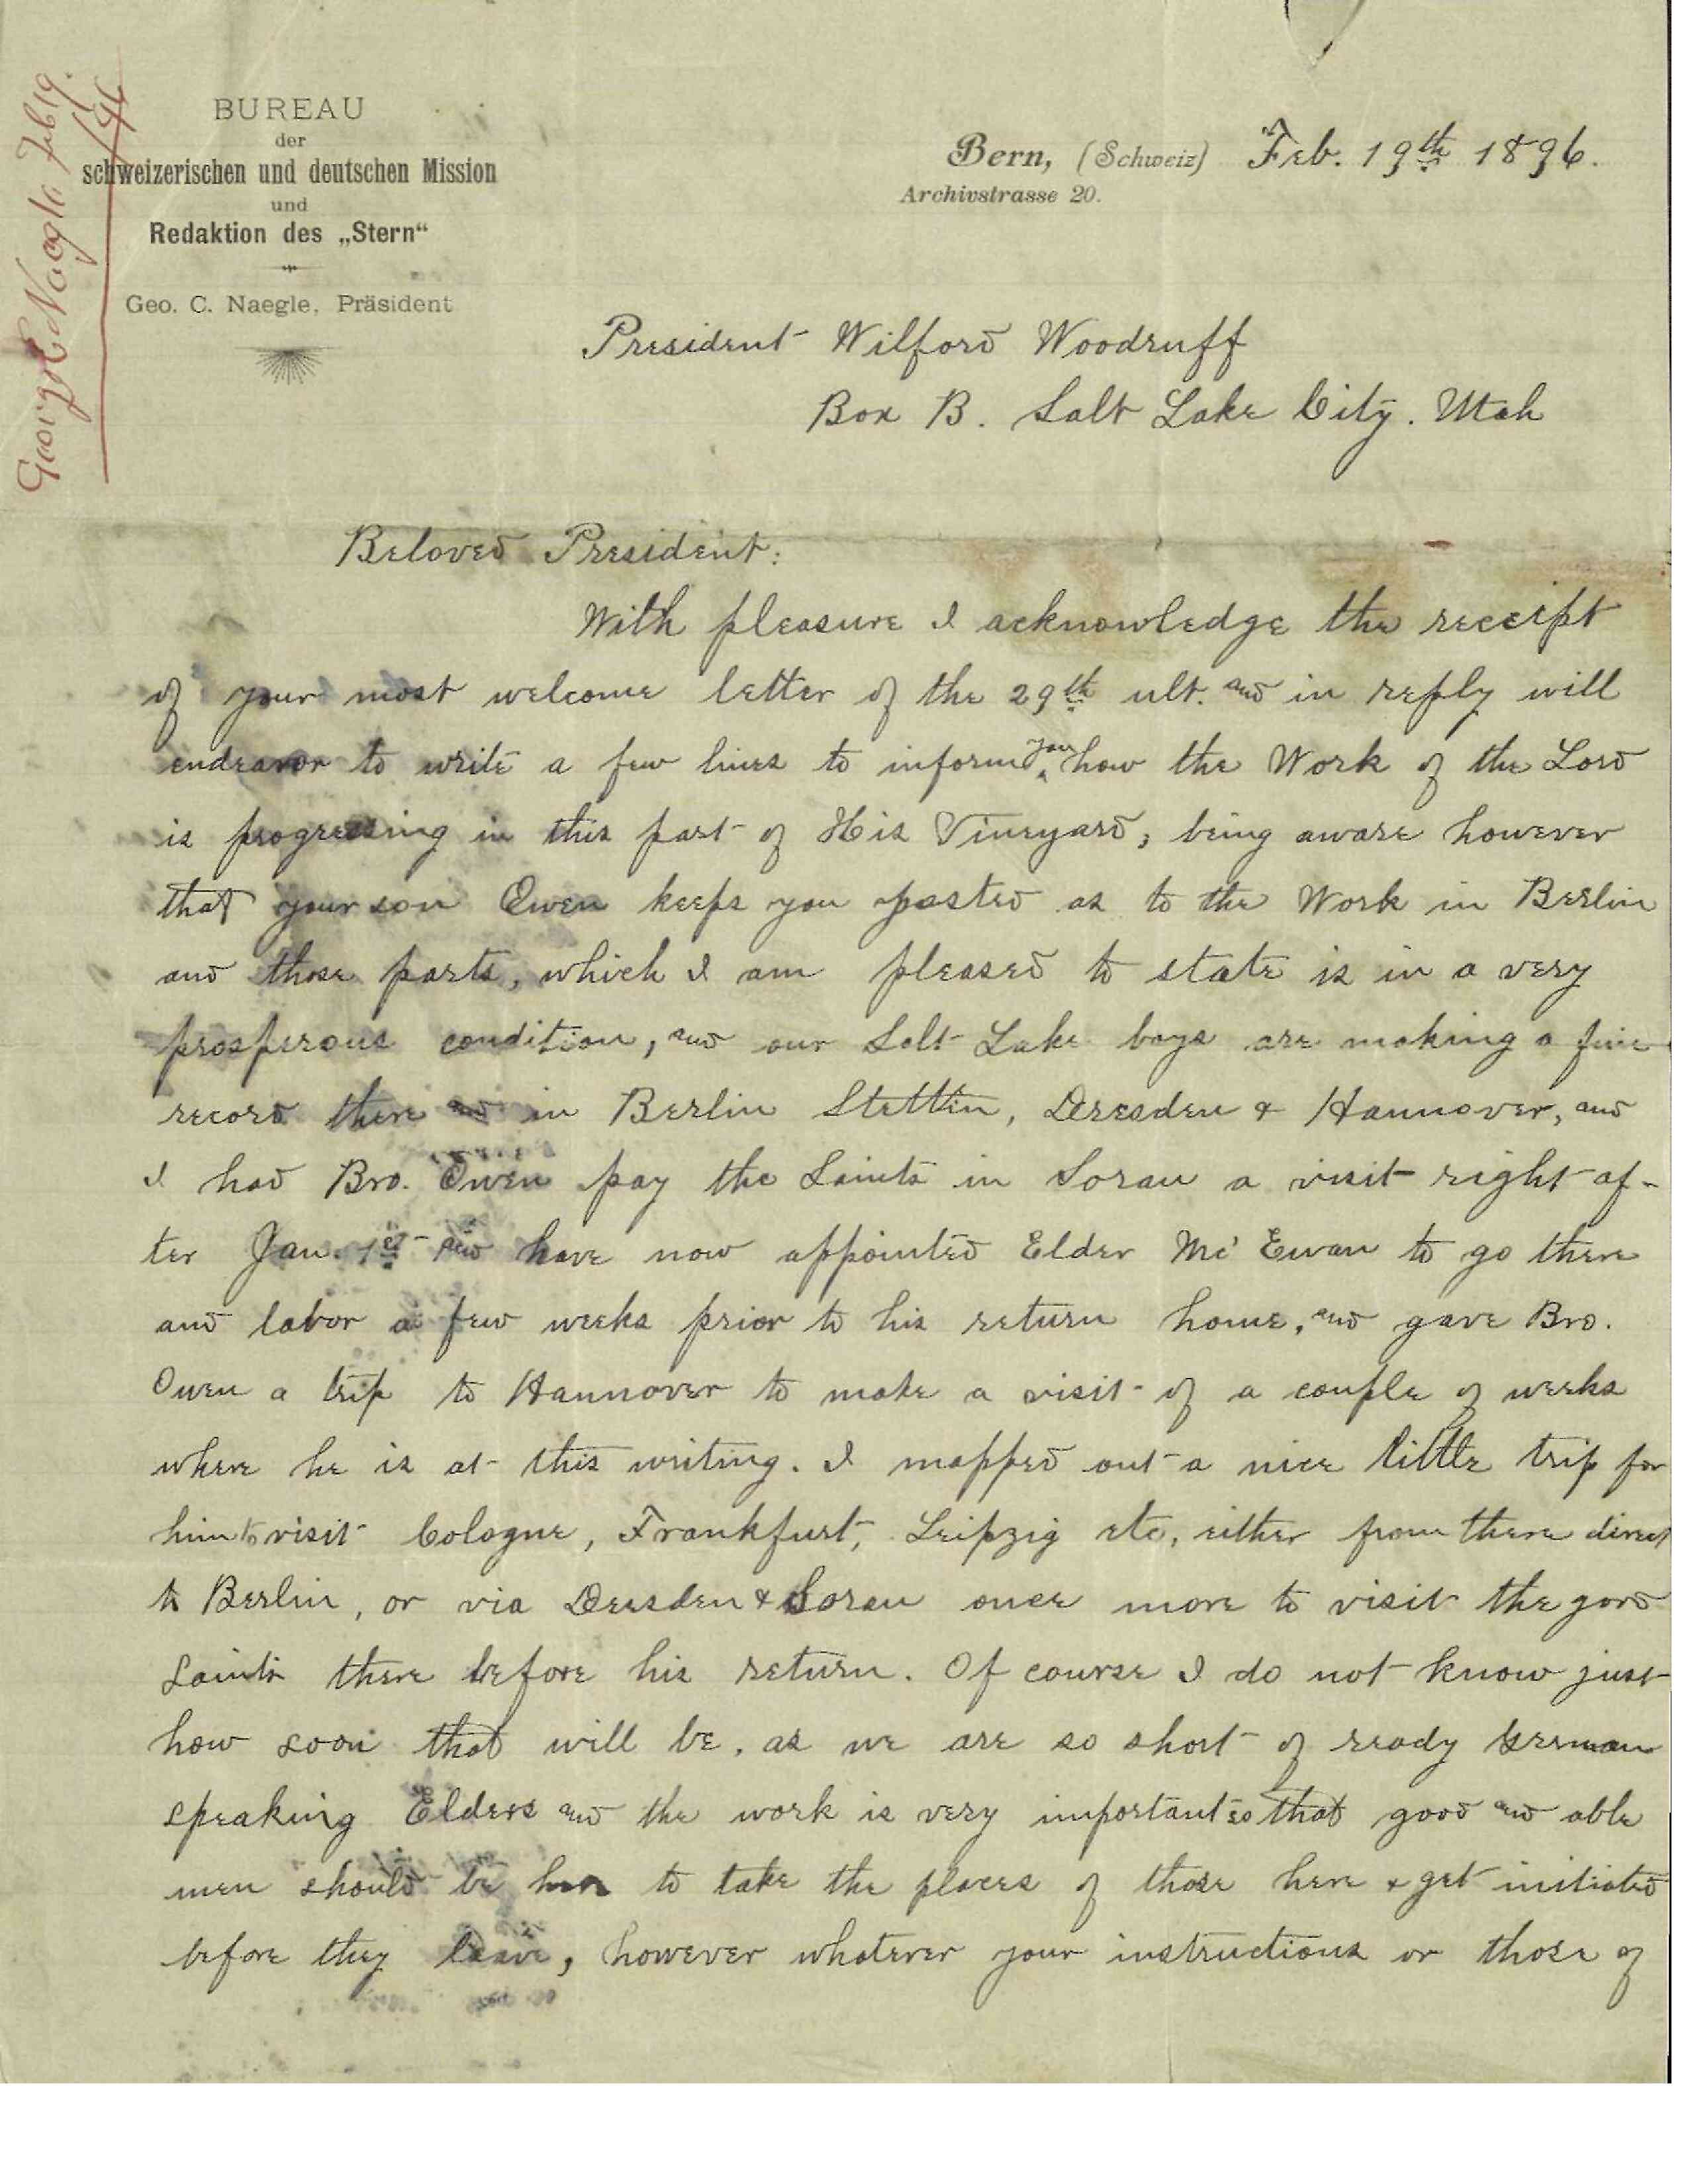 George C Naegle Feb 19.
/96
BUREAU
der
schweizerischen und deutschen Mission
und
Redaktion des „Stern“
Geo. C. Naegle, Präsident
Bern, (Schweiz) Feb. 19th 1896.
Archivstrasse 20.
President Wilford Woodruff
Box B. Salt Lake City. Utah
Beloved President:
With pleasure I acknowledge the receipt
of your most welcome letter of the 29th ult. and in reply will
endeavor to write a few lines to inform you how the Work of the Lord
is progressing in this part of His Vineyard, being aware however
that your son Owen keeps you posted as to the Work in Berlin
and those parts, which I am pleased to state is in a very
prosperous condition, and our Salt Lake boys are making a fine
record there and in Berlin Stettin, Dresden & Hannover, and
I had Bro. Owen pay the Saints in Sorau a visit right af-
ter Jan. 1st and have now appointed Elder Mc'Ewan to go there
and labor a few weeks prior to his return home, and gave Bro.
Owen a trip to Hannover to make a visit of a couple of weeks
where he is at this writing. I mapped out a nice little trip for
him to visit Cologne, Frankfurt, Leipzig etc, either from there direct
to Berlin, or via Dresden & Sorau once more to visit the good
Saints there before his return. Of course I do not know just
how soon that will be, as we are so short of ready German
speaking Elders and the work is very important so that good and able
men should be here to take the places of those here & get initiated
before they leave, however whatever your instructions or those of